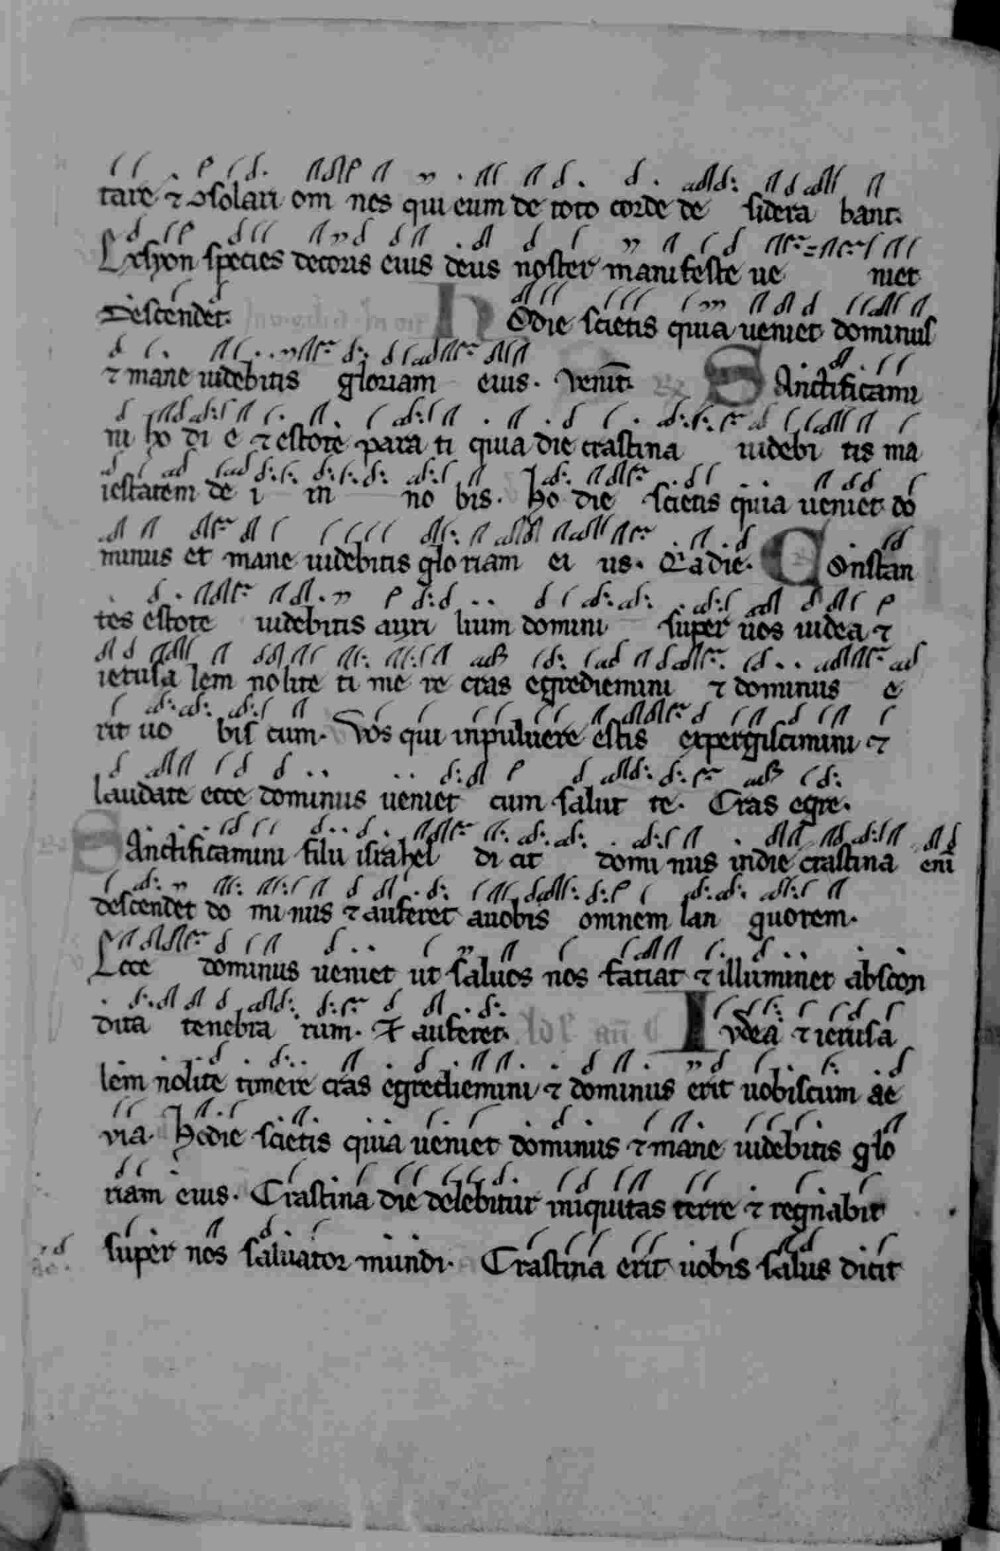 tare ⁊ ɔsolari om nes qui eum de toto corde de sidera bant.
Ex syon species decoris eius deus noster manifeste ue niet
Descendet. In uigilia H Odie scietis quia ueniet dominus
⁊ mane uidebitis gloriam eius. Venit̄. S Anctificami
ni ho di e ⁊ estote para ti quia die crastina uidebi tis ma
iestatem de i in no bis. Ho die scietis quia ueniet do
minus et mane uidebitis glo riam ei us. Q̄a die. C Onstan
tes estote uidebitis auxi lium domini super uos iudea ⁊
ierusa lem nolite ti me re cras egrediemini ⁊ dominus e
rit uo bis cum. Vos qui inpuluere estis expergiscimini ⁊
laudate ecce dominus ueniet cum salut te. Cras egre.
S Anctificamini filii israhel di cit domi nus indie crastina eni
descendet do mi nus ⁊ auferet auobis omnem lan guorem.
Ecce dominus ueniet ut saluos nos faciat ⁊ illuminet abscon
dita tenebra rum. Et auferet. añ I Vdea ⁊ ierusa
lem nolite timere cras egrediemini ⁊ dominus erit uobiscum ae
via. Hodie scietis quia ueniet dominus ⁊ mane uidebitis glo
riam eius. Crastina die delebitur iniquitas terre ⁊ regnabit
super nos saluator mundi. Crastina erit uobis salus dicit